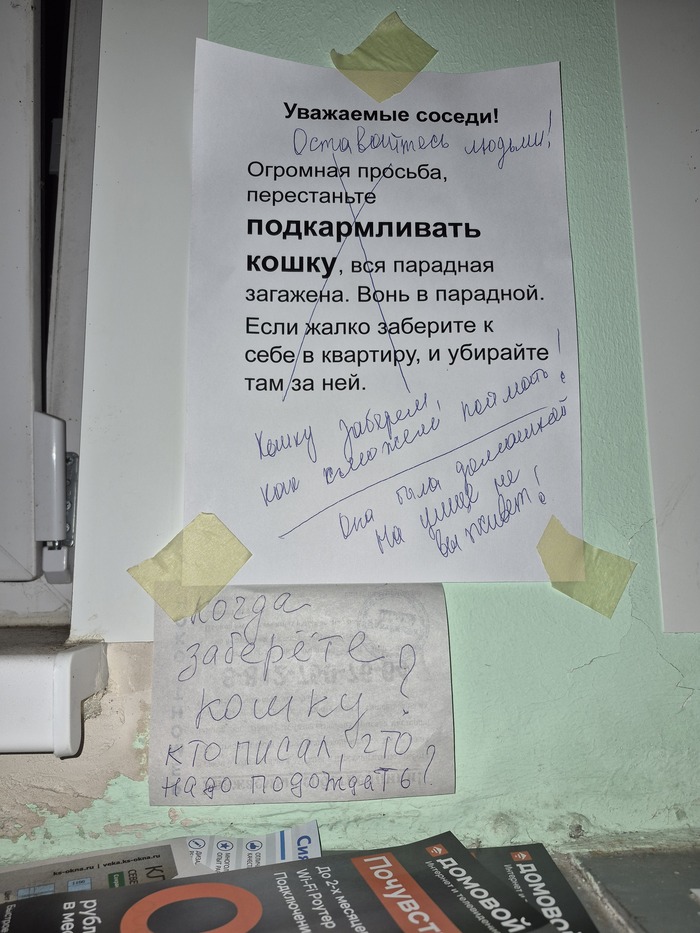 Уважаемые соседи!
Оставайтесь людьми!
Огромная просьба,
перестаньте
подкармливать
кошку, вся парадная
загажена. Вонь в парадной.
Если жалко заберите к
себе в квартиру, и убирайте
там за ней.
Кошку заберем,
как сможем поймать!
Она была домашной
На улице не
выживет!
когда
заберёте
кошку?
кто писал, что
надо подождать?
ks-okna.ru | veka.ks-okna.ru
рубл
в мес
До 2-х месяцев
Wi-Fi Роутер
Подключени
Почувст
ДОМОВОЙ
Интернет и телевидение
ДОМОВОЙ
Интернет и